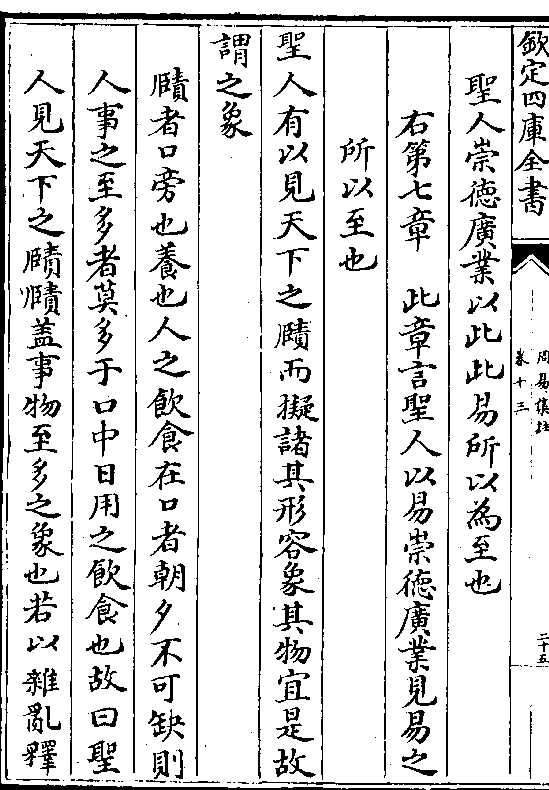 欽定四庫全書
周易集註
卷十三
二十五
聖人崇德廣業以此此易所以為至也
右第七章 此章言聖人以易崇德廣業見易之
所以至也
聖人有以見天下之賾而擬諸其形容象其物宜是故
謂之象
賾者口旁也養也人之飲食在口者朝夕不可缺則
人事之至多者莫多于口中日用之飲食也故曰聖
人見天下之賾賾盖事物至多之象也若以雜亂釋